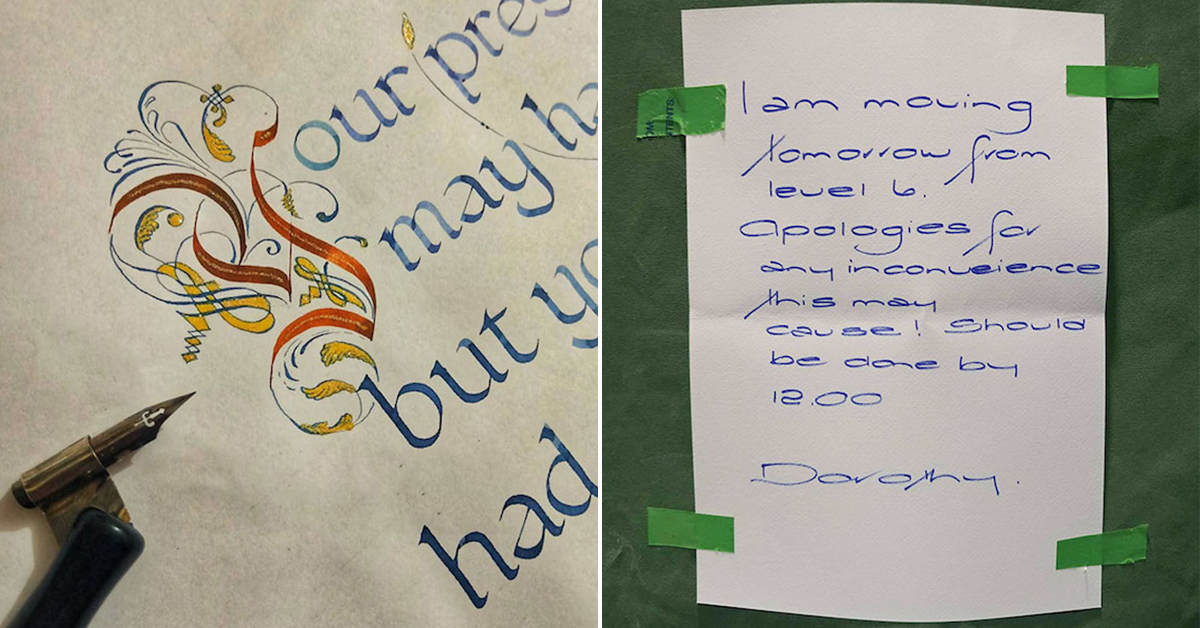 Your pres
may ha
but yo
had
I am moving
tomorrow from
level 6.
Apologies for
any inconveience
this may
cause! Should
be done by
12.00
Dorothy.